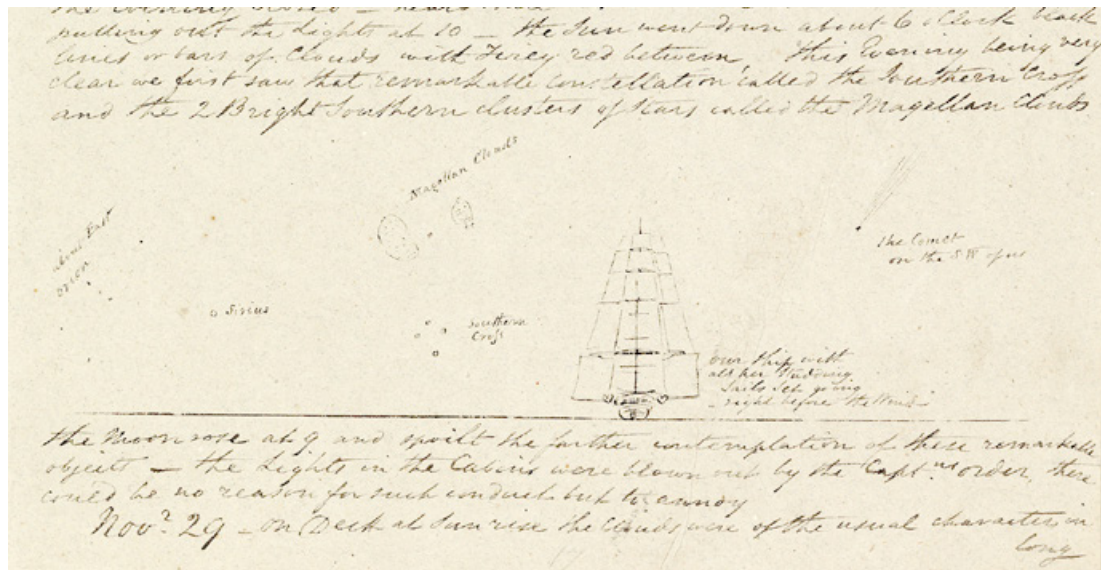 the Evening Closed —
putting out the Lights at 10 — the Sun went down about 6 oClock black
lines or bars of Clouds with Firey red between, this Evening being very
clear we first saw that remarkable constellation called the Southern Cross
and the 2 Bright Southern clusters of Stars called the Magellan Clouds
Magellan Clouds
about East
orion
the Comet
on the S W of us
Sirius
Southern
Cross
our Ship with
all her Studding
Sails Set going
right before the Wind
the Moon rose at 9 and spoilt the farther contemplation of these remarkable
objects — the Lights in the Cabins were blown out by the Capt.ns order, there
could be no reason for such conduct but to annoy
Nov.r 29 — on Deck at Sun rise the Clouds were of the usual character in
long